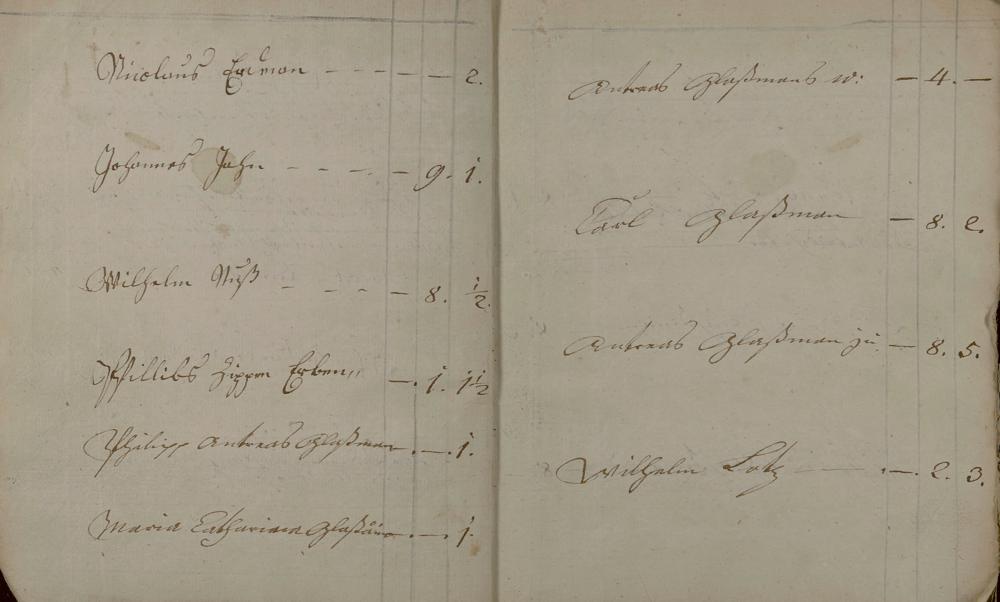 Nicolaus - - - - - 2.
Johannes Jahn - - - - - 9. 1.
Wilhelm Nuß - - - - 8. ½.
Phillibs Zippen Erben,, —. 1. 1½
Philipp Antreas Glaßman .—. 1.
Maria Catharina .—. 1.
Antreas Glaßmans w: — 4. —
Carl Glaßman — 8. 2.
Antreas Glaßman ju. — 8. 5.
Wilhelm Lotz — .—. 2. 3.